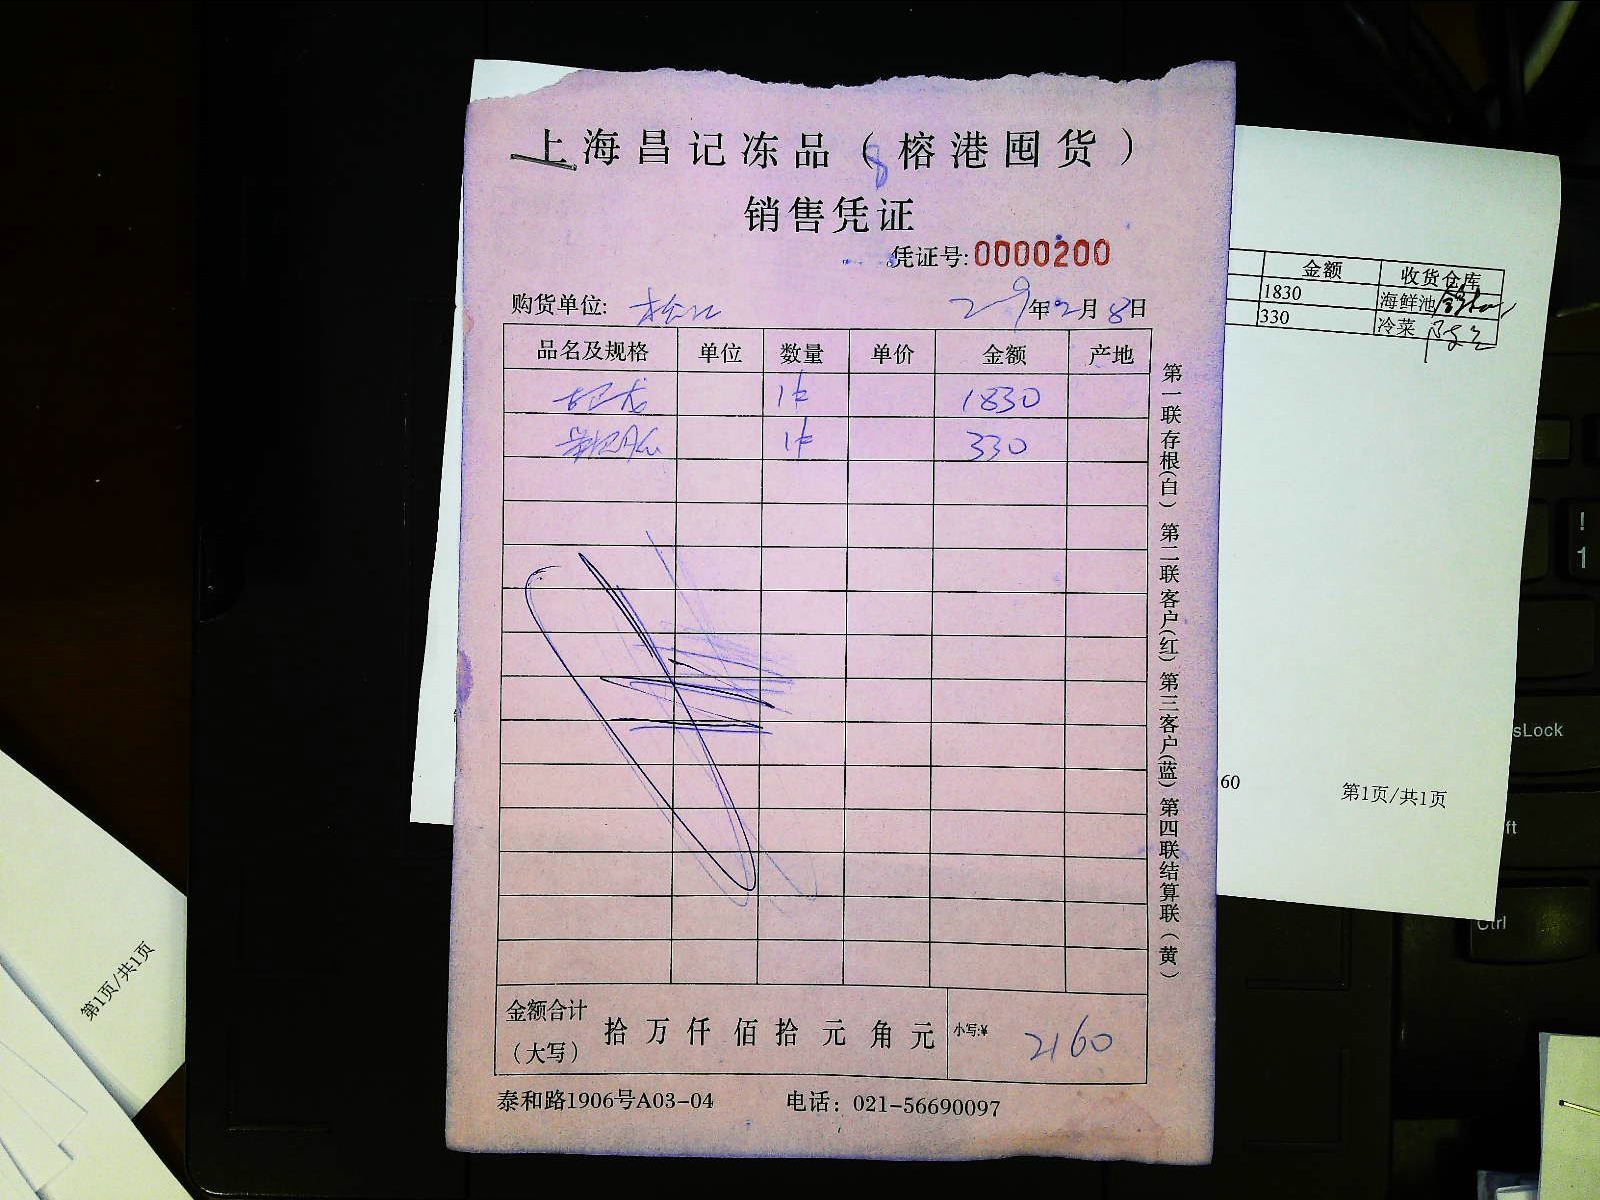 上海昌记冻品（榕港囤货）
销售凭证
凭证号:0000200
购货单位: 松江 29年2月8日
品名及规格 单位 数量 单价 金额 产地
1件 1830
1件 330
金额合计（大写） 拾 万 仟 佰 拾 元 角 元 小写:¥ 2160
泰和路1906号A03-04 电话：021-56690097
第一联存根（白） 第二联客户（红） 第三客户（蓝） 第四联结算联（黄）
金额 收货仓库
1830 海鲜池
330 冷菜
60 第1页/共1页
第1页/共1页
!
1
sLock
ft
Ctrl